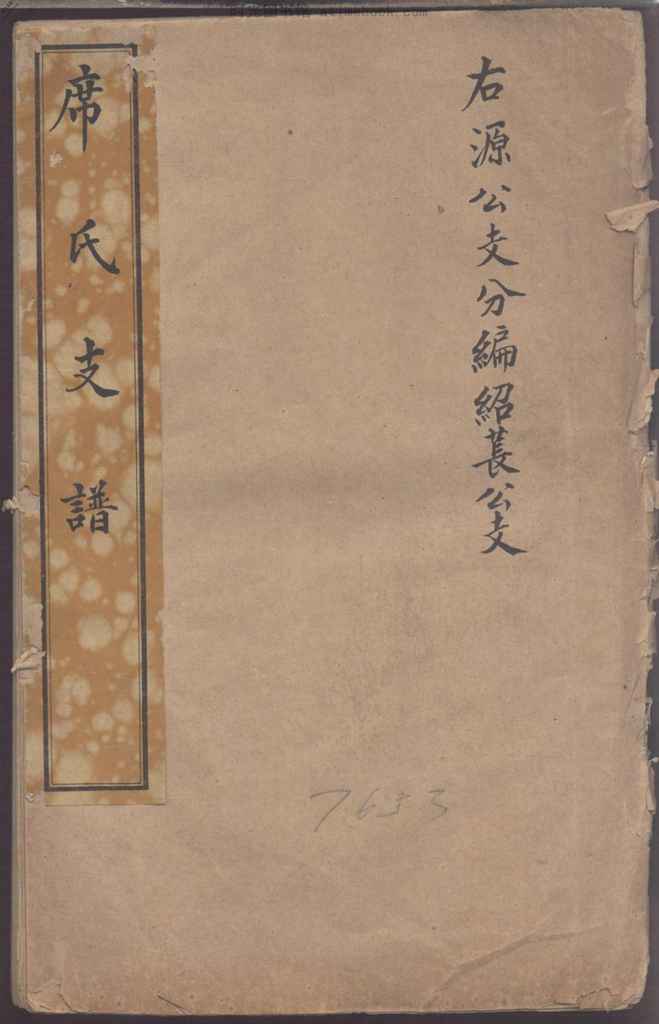 右源公支分編紹萇公支
席氏支譜
7653